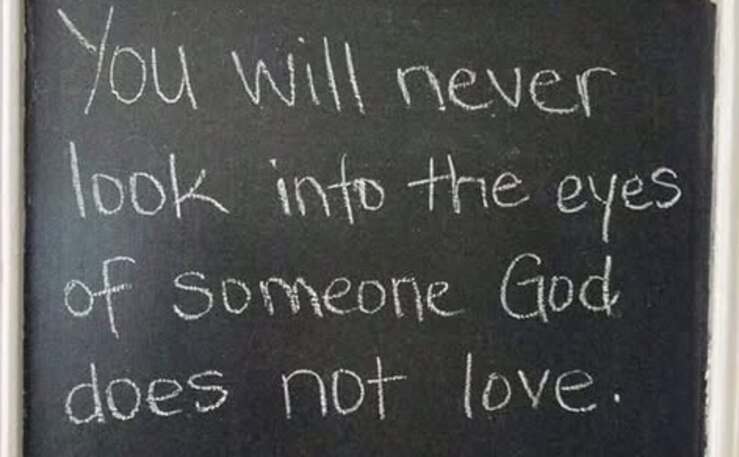 You will never
look into the eyes
of someone God
does not love.